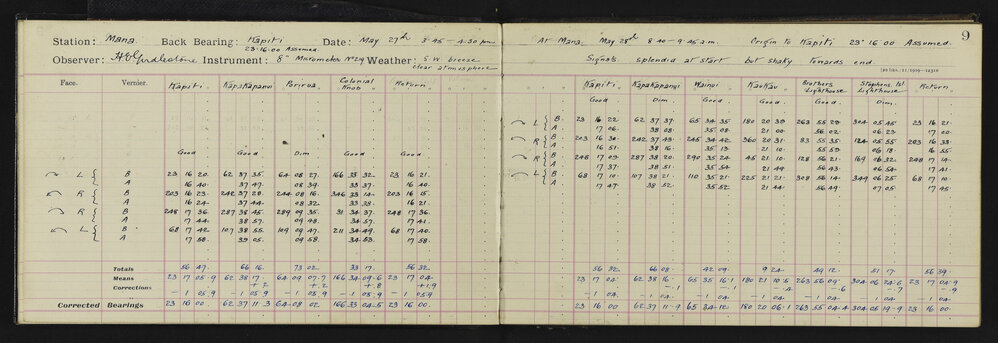 Station: Mana. Back Bearing: Kapiti Date: May 27th 3·45 - 4·30 pm
23·16·00 Assumed.
Observer: Instrument: 8" Micrometer No 29 Weather: S.W breeze
clear atmosphere
Face. Vernier. Kapiti KapaKapanui Porirua Colonial Knob Return
Good Good Dim Good Good
L B 23 16 20 62 37 35 64 08 27 166 33 32 23 16 21
A 16 40 37 47 08 39 33 37 16 40
R B 203 16 23 242 37 20 244 08 16 346 33 14 203 16 15
A 16 24 37 44 08 32 33 38 16 21
R B 248 17 36 287 38 45 289 09 35 31 34 37 248 17 36
A 17 44 38 57 09 48 34 57 17 41
L B 68 17 42 107 38 55 109 09 47 211 34 49 68 17 40
A 17 58 39 05 09 58 34 53 17 58
Totals 56 47 66 16 73 02 33 17 56 32
Means 23 17 05·9 62 38 17 64 09 07·7 166 34 09·6 23 17 04
Corrections +2 +2 +8 +1·9
- 1 05 9 - 1 05 9 - 1 05 9 - 1 05 9 - 1 05 9
Corrected Bearings 23 16 00 62 37 11·3 64 08 02 166 33 04·5 23 16 00
9
At Mana. May 28th 8·40 - 9·45 a.m. Origin to Kapiti 23° 16 00 Assumed.
Signals splendid at start but shaky towards end.
Kapiti KapaKapanui Wainui KauKau Brothers Lighthouse Stephens Isl Lighthouse Return
Good Dim Good Good Good Dim.
L B 23 16 22 62 37 37 65 34 35 180 20 39 263 55 28 304 05 45 23 16 21
A 17 06 38 08 35 08 21 00 56 02 06 23 17 00
R B 203 16 34 242 37 43 245 34 42 360 20 31 83 55 35 124 05 55 203 16 33
A 16 51 38 16 35 13 21 10 55 59 06 18 16 55
R B 248 17 09 287 38 20 290 35 24 45 21 10 128 56 21 169 06 32 248 17 14
A 17 37 38 51 35 54 21 49 56 43 06 54 17 41
L B 68 17 10 107 38 21 110 35 21 225 21 21 308 56 14 349 06 25 68 17 10
A 17 47 38 52 35 52 21 44 56 49 07 05 17 45
56 32 66 08 42 09 9 24 49 12 51 17 56 39
23 17 04 62 38 16 65 35 16·1 180 21 10·5 263 56 09 304 06 24·6 23 17 04·9
-·1 -·4 -·6 -·7 -·9
- 1 04 - 1 04 - 1 04 - 1 04 - 1 04 1 04 - 1 04
23 16 00 62 37 11·9 65 34 12 180 20 06·1 263 55 04·4 304 05 19·9 23 16 00